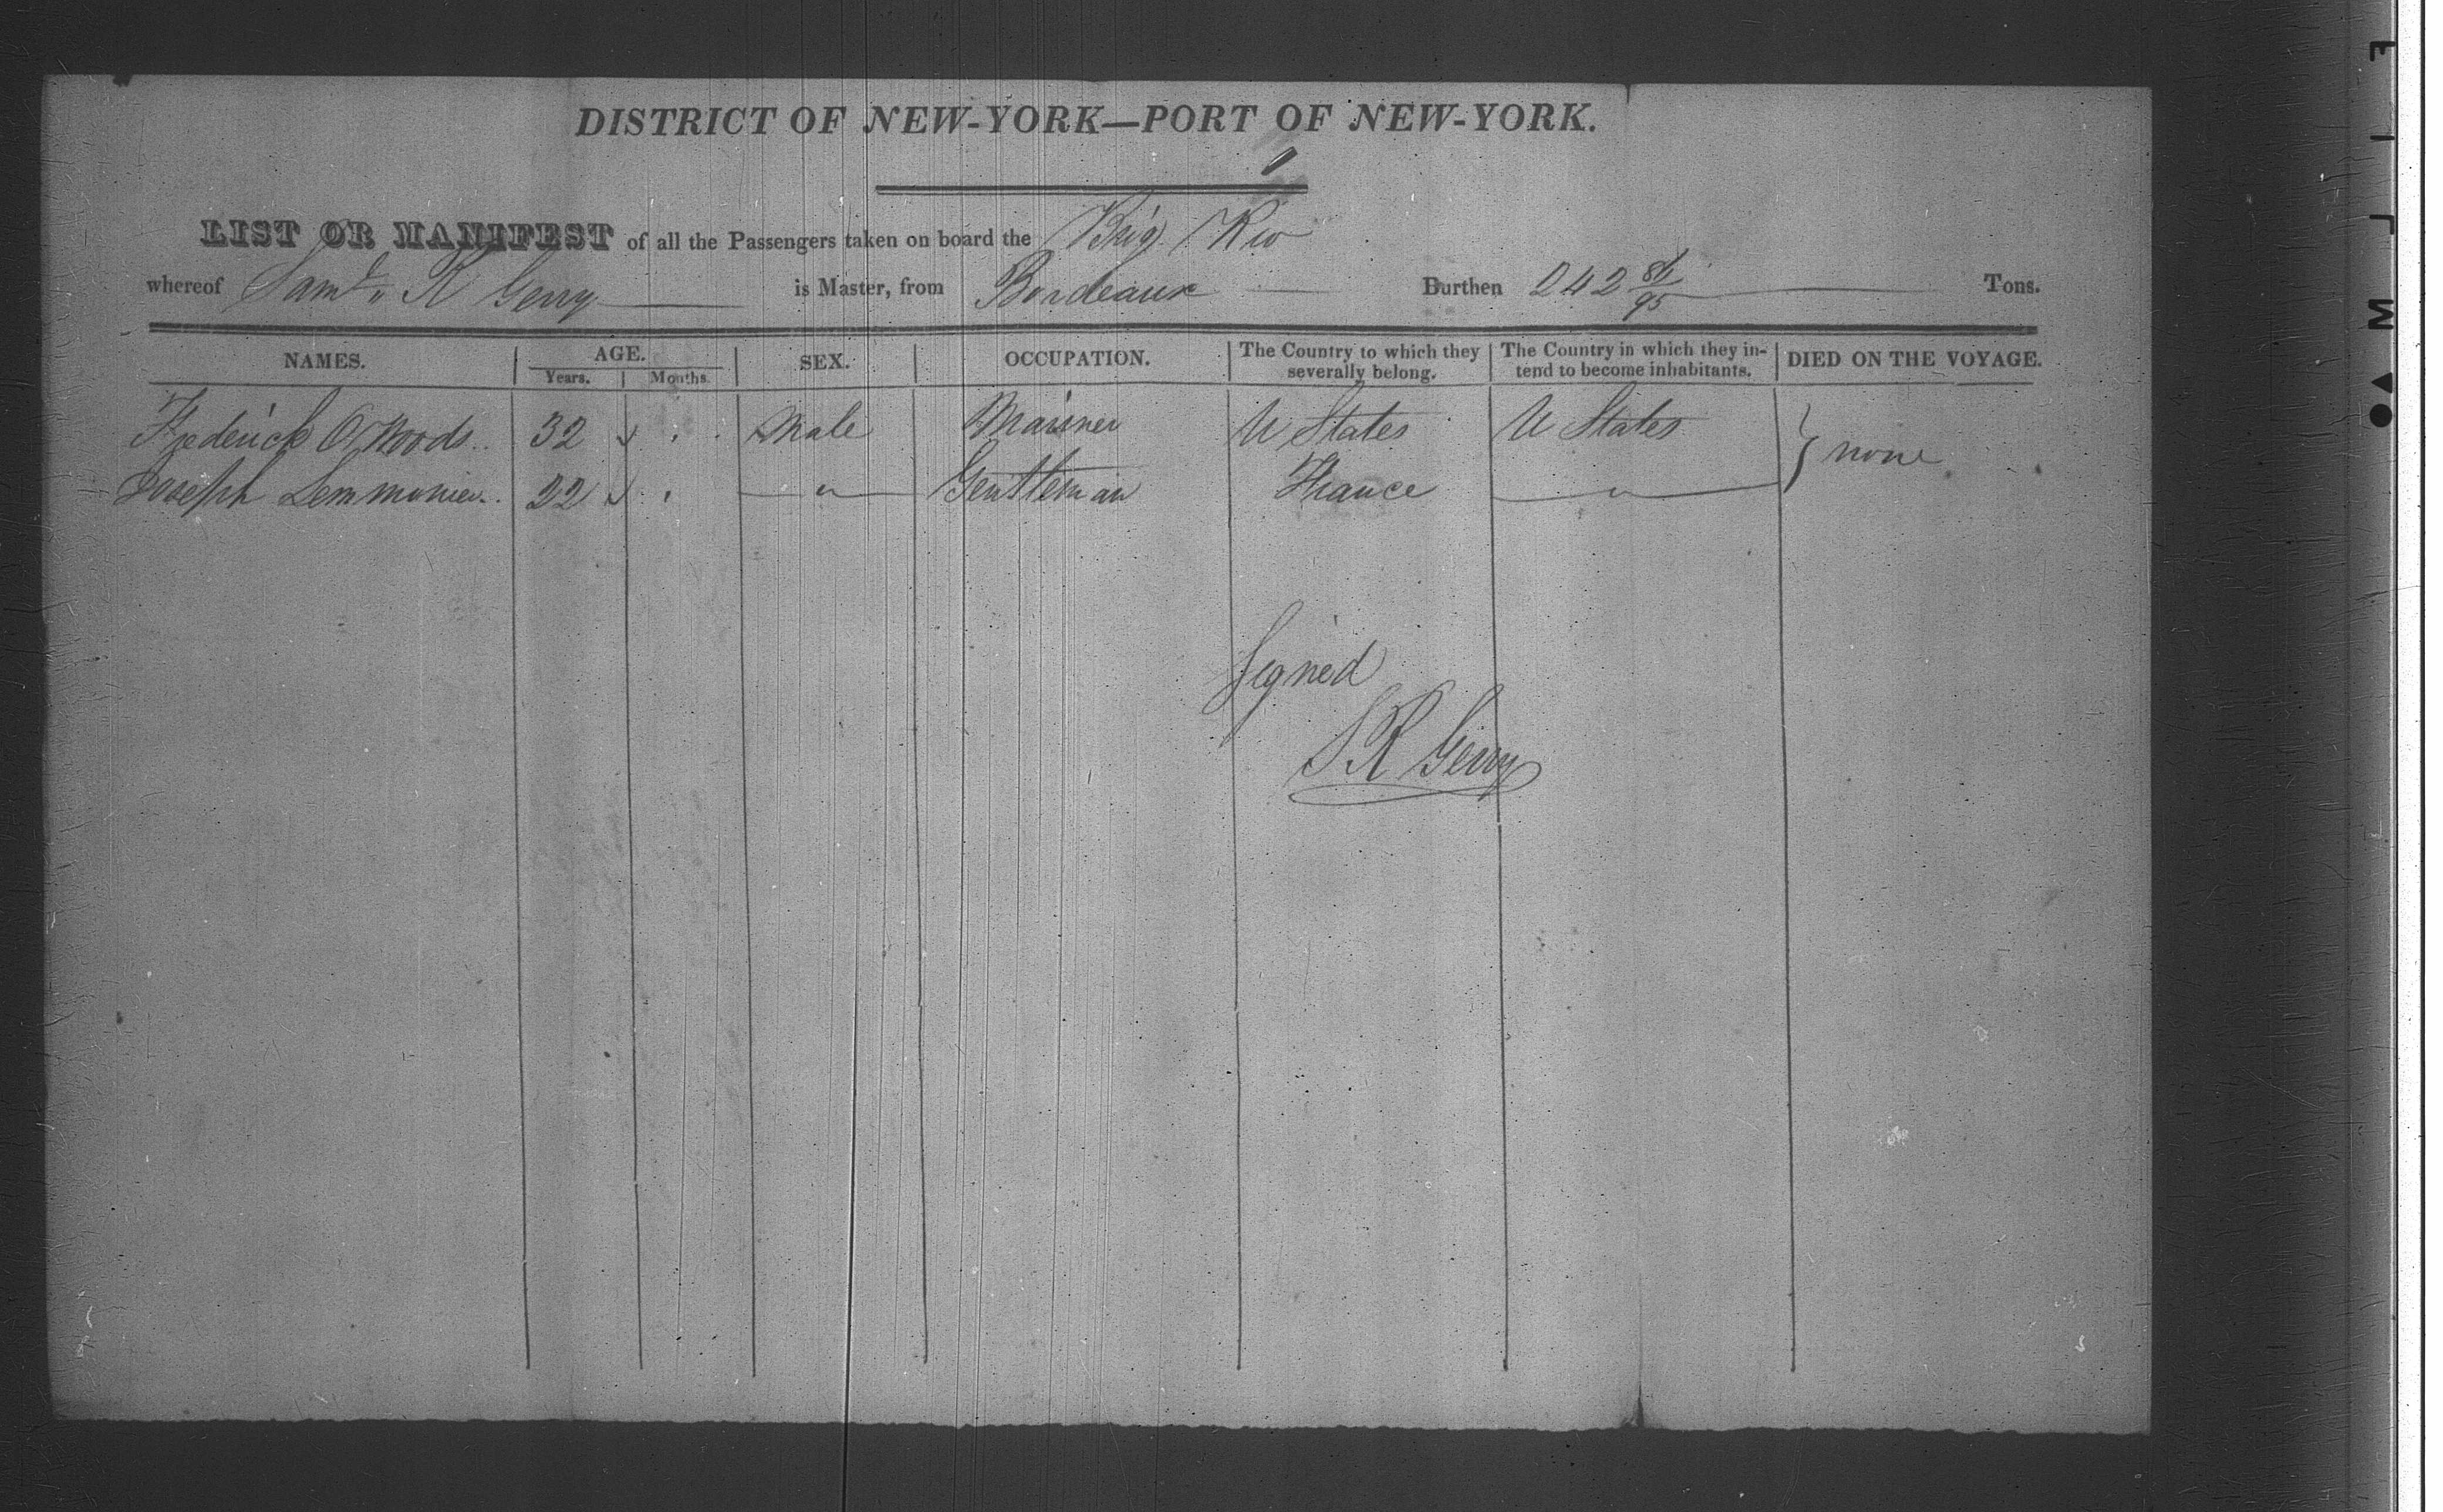 DISTRICT OF NEW-YORK—PORT OF NEW-YORK.
LIST OR MANIFEST of all the Passengers taken on board the Brig Rio
whereof Saml. R Gerry is Master, from Bordeaux Burthen 242 86/95 Tons.
NAMES. AGE. SEX. OCCUPATION. The Country to which they severally belong. The Country in which they intend to become inhabitants. DIED ON THE VOYAGE.
Years. Months.
Frederick O Woods 32 Male Mariner U States U States } none
Joseph Lemmonier 22 " Gentleman France "
Signed
S R Gerry